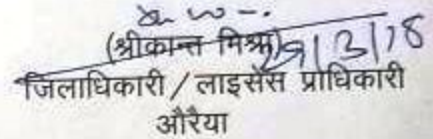 (श्रीकान्त मिश्र)
जिलाधिकारी / लाइसेंस प्राधिकारी
औरैया